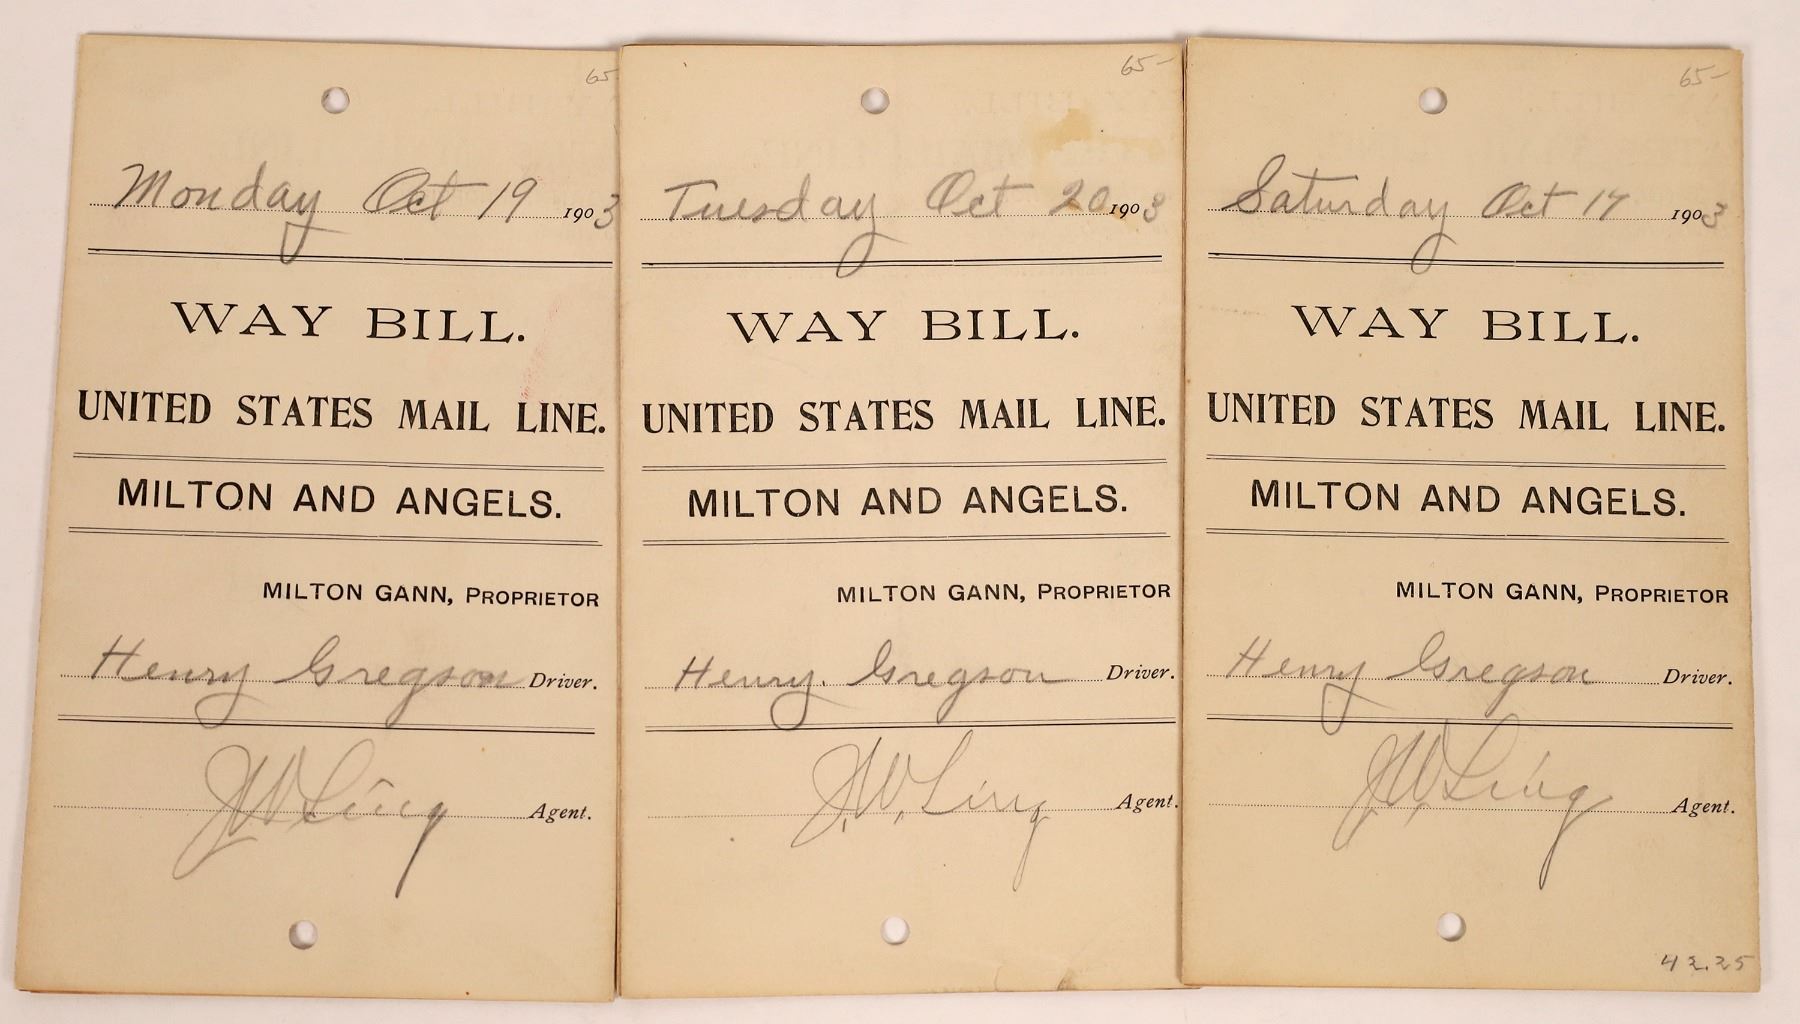 65
Monday Oct 19 1903
WAY BILL.
UNITED STATES MAIL LINE.
MILTON AND ANGELS.
MILTON GANN, PROPRIETOR
Henry Gregson Driver.
J.W. Ling Agent.
65-
Tuesday Oct 20 1903
WAY BILL.
UNITED STATES MAIL LINE.
MILTON AND ANGELS.
MILTON GANN, PROPRIETOR
Henry. Gregson Driver.
J.W. Ling Agent.
65-
Saturday Oct 17 1903
WAY BILL.
UNITED STATES MAIL LINE.
MILTON AND ANGELS.
MILTON GANN, PROPRIETOR
Henry Gregson Driver.
J.W. Ling Agent.
42.25